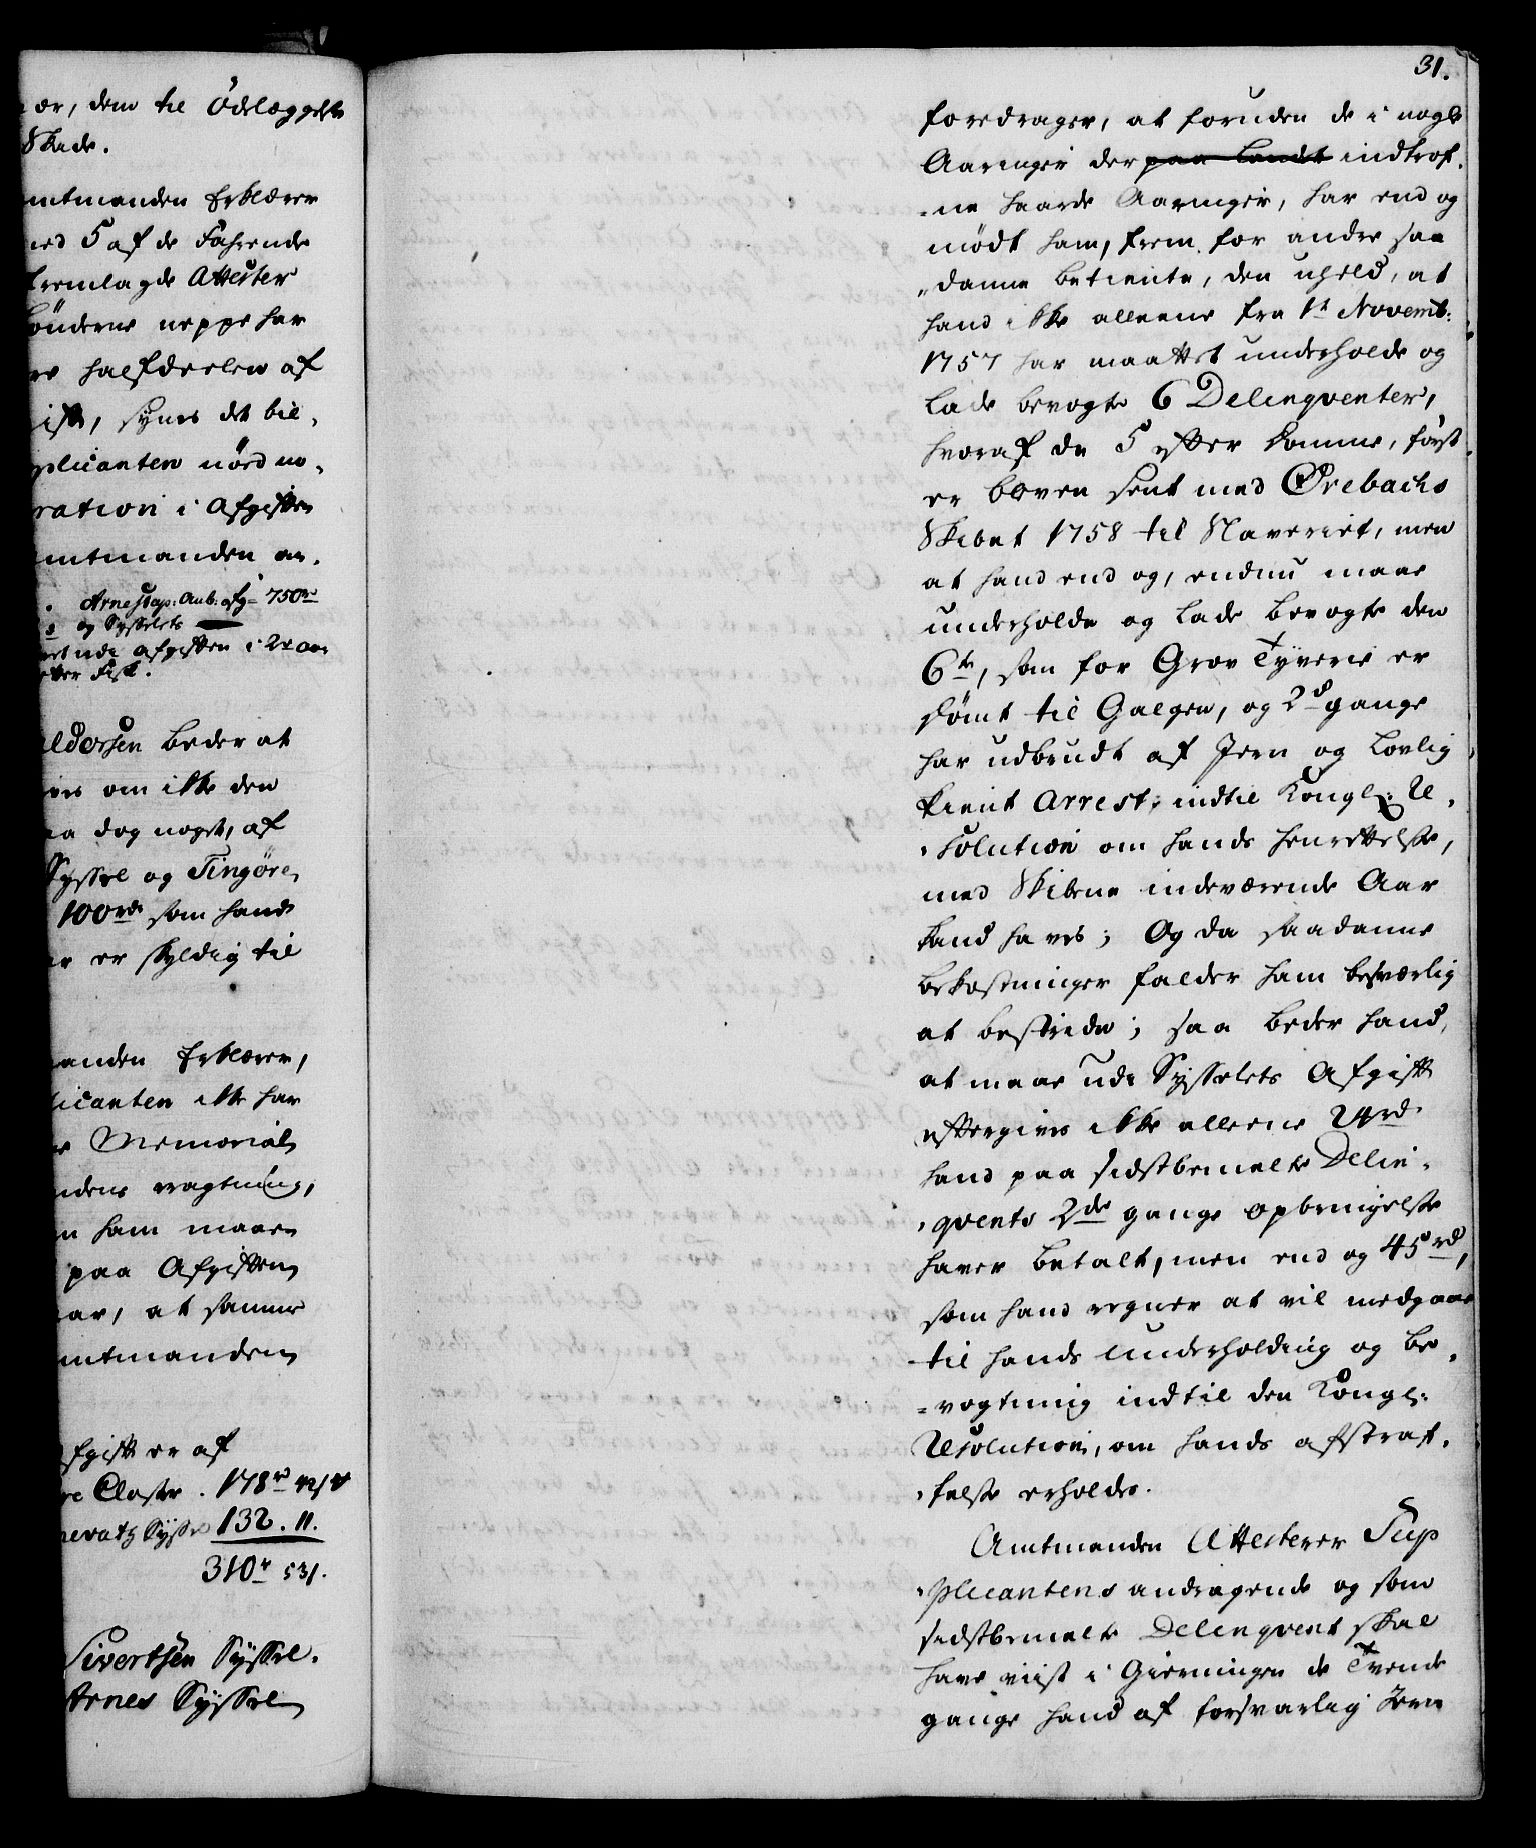 ær, dem til Ödelæggelse
Skade.
mtmanden Erklærer
med 5 af de Fahrende
fremlagde Attester
bönderne neppe har
halfdeelen af
fisk, synes det bil¬
plicanten nöd mo¬
ration i Afgiften
mtmanden an¬
Arnestap: Omb: afg= 750 rd
og Sysselets
ret udi afgiften i 2de aar
efter Fisk.
aldorsen beder at
om ikke den
aa dog noget, af
Syssel og Tingöre
100 rd som hand
er skyldig til
anden Erklærer,
licanten ikke har
Memorial
ndens vagtning,
ham maae
paa Afgiften
aar, at samme
mtmanden
fgift er af
Closter . 178 r
nevatz Syssel 132 . 11.
310 r 53 s.
Sivertsen Syssel¬
Arnes Syssel
31.
foredrager, at foruden de i nogle
Aaringer der paa Landet indtrof¬
=ne haarde Aaringer, har end og
mödt ham, frem for andre saa
„danne betiente, den uheld, at
hand ikke alleene fra 1st Novemb:
1757 har maattet underholde og
lade bevogte 6 Delinqventer,
hvoraf de 5 efter Domme, först
er bleven sent med Ørebachs
Skibet 1758 til Slaveriet, men
at hand end og, endnu maae
underholde og lade bevogte den
6te, som for Grov Tyverie er
dömt til Galgen, og 2de gange
har udbrudt af Jern og lovlig
kient Arrest; indtil Kongl: Re¬
¬solution om hands henrettelse,
med Skibene indeværende Aar
kand haves; Og da saadanne
bekostninger falder ham besværlig
at bestride; saa beder hand,
at maae udi Sysselets Afgift
eftergives ikke alleene 24 rd
hand paa sidstbemelte Delin¬
¬qvents 2de gange opbringelse
haver betalt, men end og 45 rd,
som hand regner at vil medgaae
til hands underholding og be¬
=vogtning indtil den Kongl:
Resolution, om hands afstraf¬
¬felse erholdes.
Amtmanden Attesterer Sup
¬plicantens andragende og som
sidstbemelte Delinqvent skal
have viist i Gierningen de Tvende
gange hand af forsvarlig Jern